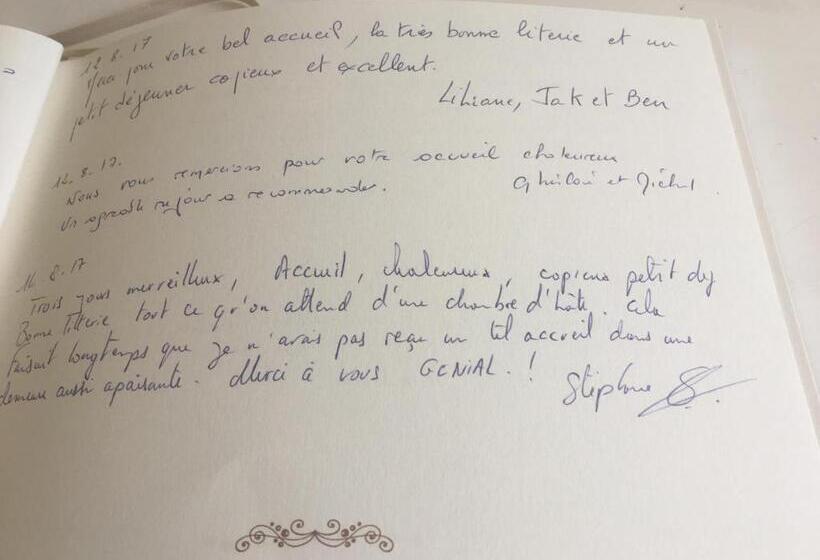 12.8.17
pour votre bel accueil, la très bonne literie et un
petit déjeuner copieux et excellent.
Liliane, Jak et Ben
12.8.17.
Nous vous remercions pour votre accueil chaleureux
Un agreable sejour a recommander.
Ghislain et Michel.
14.8.17
Trois jours merveilleux, Accueil, chaleureux, copieux petit dej
Bonne litterie tout ce qu'on attend d'une chambre d'hôte. Cela
faisait longtemps que je n'avais pas reçu un tel accueil dans une
demeure aussi apaisante. Merci à vous GENIAL.!
Stéphane